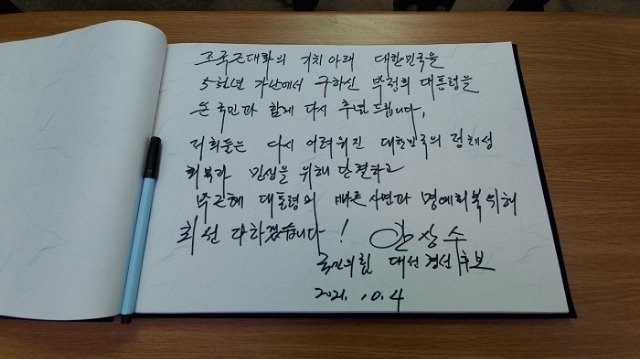 조국근대화의 기치아래 대한민국을
5천년 가난에서 구하신 박정희 대통령을
온 국민과 함께 다시 추념드립니다.
저희들은 다시 어려워진 대한민국의 정체성
회복과 민심을 위해 단결하고
박근혜 대통령의 빠른 사면과 명예회복 위해
최선 다하겠습니다! 안상수
국민의힘 대선경선후보
2021. 10. 4